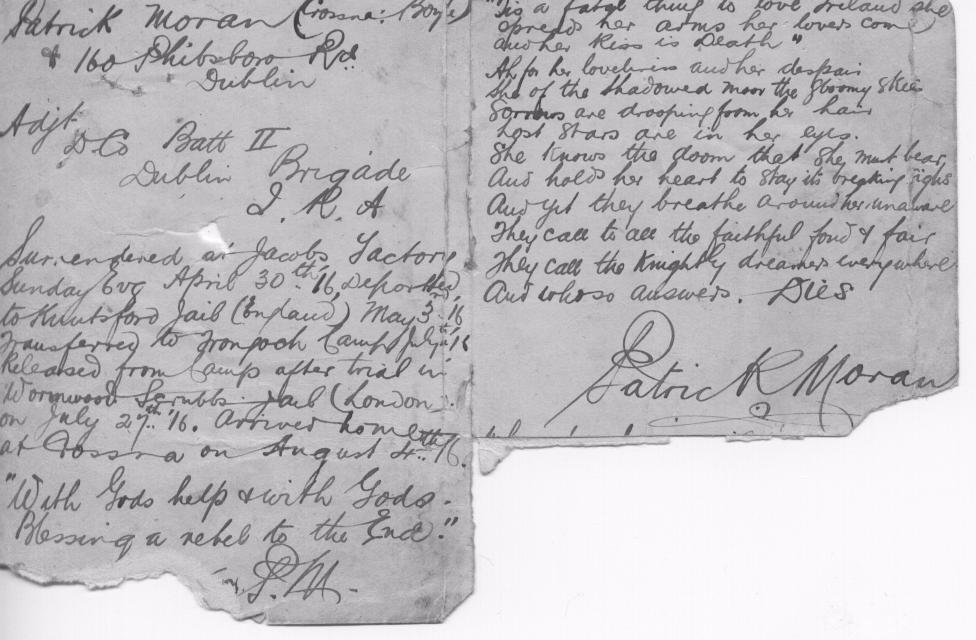 Patrick Moran (Crossna. Boyle
& 160 Phibsboro Rd
Dublin
Adjt
D. Co Batt II
Dublin Brigade
I. R. A
Surrendered at Jacobs Factory
Sunday Evg April 30th '16, Deported
to Knutsford Jail (England) May 3rd '16
Transferred to Frongoch Camp July '16
Released from Camp after trial in
Wormwood Scrubbs Jail (London
on July 27th '16. Arrived home
at Crossna on August 4th '16.
"With Gods help & with Gods
Blessing a rebel to the End."
P. M.
"Tis a fatal thing to love Ireland she
spreads her arms her lovers come
and her Kiss is Death"
Ah, for her loveliness and her despair
She of the shadowed moor the gloomy Skies
Sorrows are drooping from her hair
Lost Stars are in her eyes.
She Knows the doom that she must bear,
And holds her heart to stay its breaking sighs
And yet they breathe around her unaware
They call to all the faithful fond & fair
They call the Knightly dreamers everywhere
And whoso answers. Dies
Patrick Moran